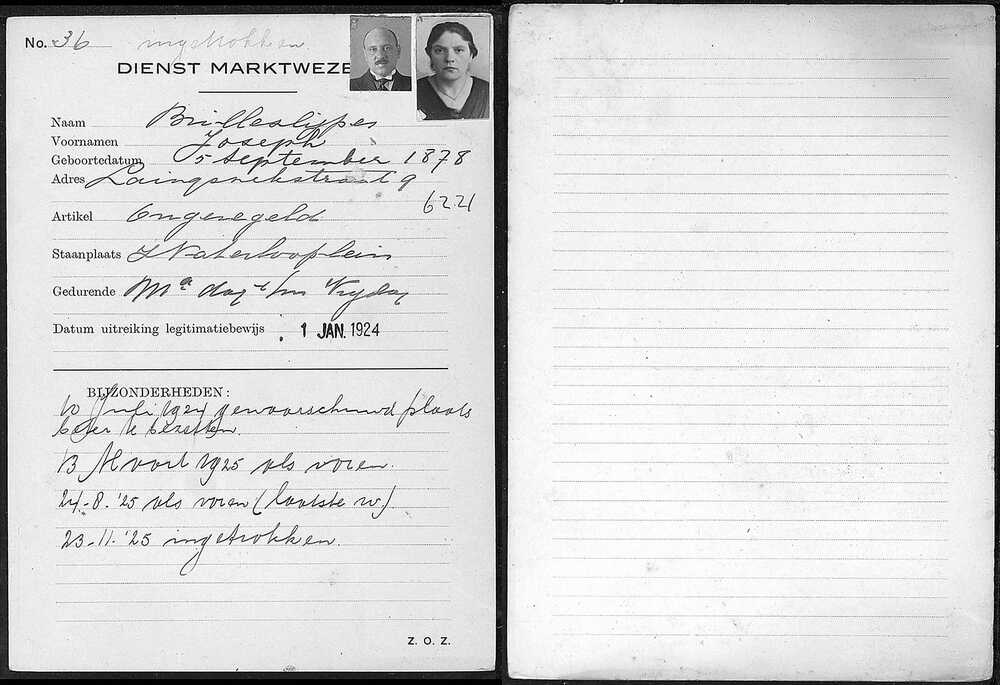 No. 36 ingetrokken.
DIENST MARKTWEZE
Naam Brilleslijper
Voornamen Joseph
Geboortedatum 5 September 1878
Adres Laingsnekstraat 9
6221
Artikel Ongeregeld
Staanplaats Waterlooplein
Gedurende Ma dag t/m Vrijdag
Datum uitreiking legitimatiebewijs 1 JAN. 1924
BIJZONDERHEDEN:
10 Juli 1924 gewaarschuwd plaats
beter te bezetten.
13 Maart 1925 als voren.
24-8.'25 als voren (laatste w.)
23-11.'25 ingetrokken.
Z. O. Z.